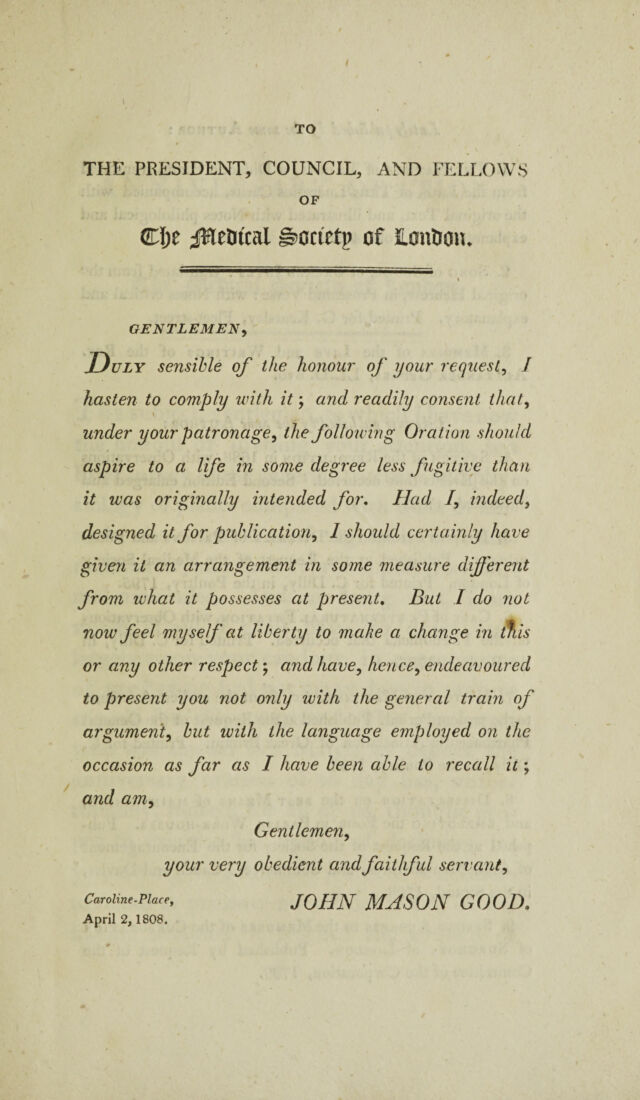 TO
THE PRESIDENT, COUNCIL, AND FELLOWS
OF
The Medical Society of London.
GENTLEMEN,
DULY sensible of the honour of your request, I
hasten to comply with it; and readily consent that,
under your patronage, the following Oration should
aspire to a life in some degree less fugitive than
it was originally intended for. Had I, indeed,
designed it for publication, I should certainly have
given it an arrangement in some measure different
from what it possesses at present. But I do not
now feel myself at liberty to make a change in this
or any other respect; and have, hence, endeavoured
to present you not only with the general train of
argument, but with the language employed on the
occasion as far as I have been able to recall it;
and am,
Gentlemen,
your very obedient and faithful servant,
JOHN MASON GOOD.
Caroline-Place,
April 2, 1808.